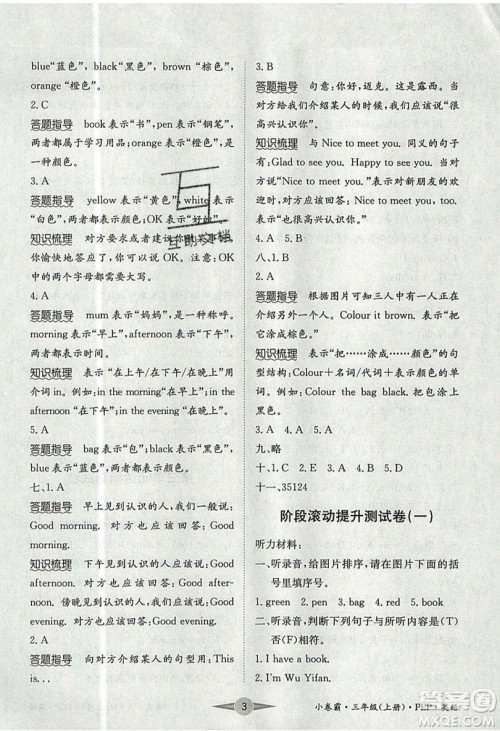 blue“蓝色”，black“黑色”，brown“棕色”，
orange“橙色”。
2. C
答题指导 book 表示“书”，pen 表示“钢笔”，
两者都属于学习用品；orange 表示“橙色”，是
一种颜色。
3. A
答题指导 yellow 表示“黄色”，white 表示
“白色”，两者都表示颜色；OK 表示“好的”。
知识梳理 对方要求或者建议你做某事，你
愉快地答应了可以用“OK”应答。注意 OK 中
的两个字母都需要大写。
4. A
答题指导 mum 表示“妈妈”，是人物称呼。
morning 表示“早上”，afternoon 表示“下午”，
两者都表示时间。
知识梳理 表示“在上午/在下午/在晚上”用
介词 in。例如：in the morning“在上午”，in the
afternoon“在下午”，in the evening“在晚上”。
5. A
答题指导 bag 表示“包”，black 表示“黑色”，
blue 表示“蓝色”，两者都表示颜色。
七、1. A
答题指导 早上见到认识的人，我们一般说：
Good morning. 对方也应该回答：Good
morning.
知识梳理 下午见到认识的人应该说：Good
afternoon. 对方应该回答：Good
afternoon. 傍晚见到认识的人应该说：Good
evening. 对方也应该回答：Good evening.
2. A
答题指导 向对方介绍某人的句型用：This
is...
3. B
答题指导 句意：你好，迈克。这是露西。当
对方为我们介绍某人的时候，我们应该说“很
高兴认识你”。
知识梳理 与 Nice to meet you. 同义的句子
有：Glad to see you. Happy to see you. Good
to see you. 等，表示对新朋友或新同学的欢
迎时，还可以用“Nice to meet you.”回答，表示
“我也很高兴认识你”。
4. A 5. B
八、1. B
答题指导 根据图片可知三人中有一个人
说：“把它涂成棕色”，Colour it brown. 表示“把
它涂成棕色。”
知识梳理 表示“把……涂成……颜色”的句
型结构：Colour＋名词/代词＋表示颜色的单
词。例如：Colour the bag black. 把包涂上
黑色。
2. A 3. A
九、略
十、1. C 2. E 3. D 4. A 5. B
十一、35124
阶段滚动提升测试卷(一)
听力材料：
一、听录音，给图片排序，请在图片下面的括
号里填序号。
1. green 2. pen 3. red 4. face 5. book
二、听录音，判断下列句子与所听内容是(T)
否(F)相符。
1. I have a book.
2. I'm Wu Yifan.
3
小卷霸·三年级(上册)·PEP·英语
互助文档